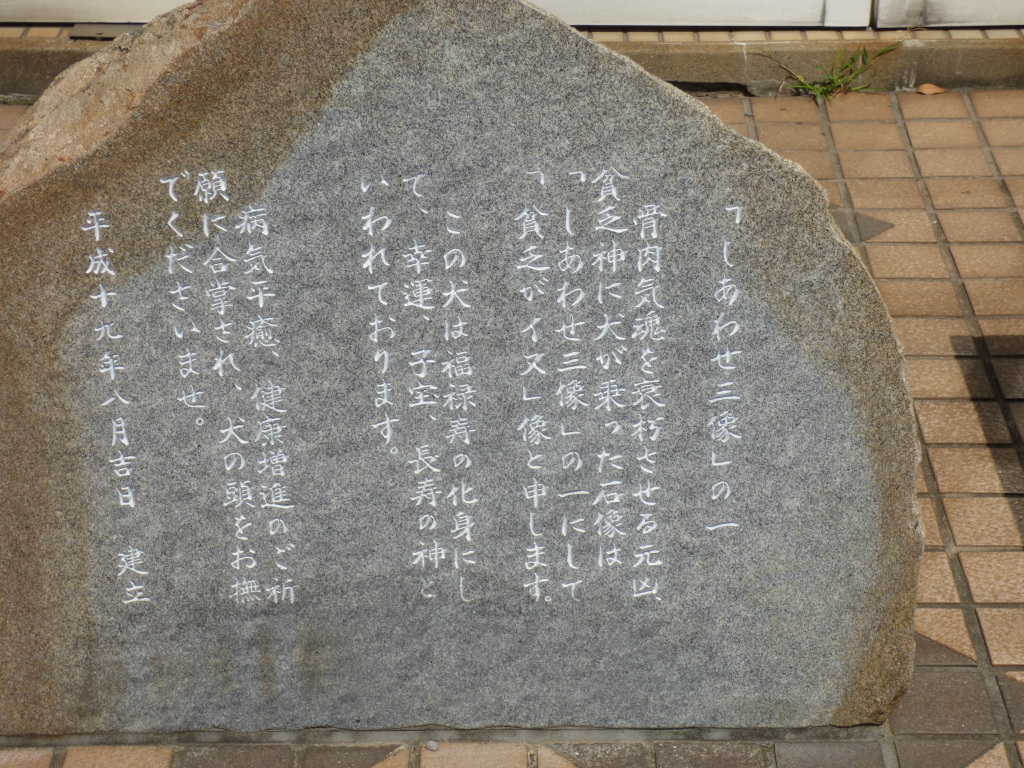 「しあわせ三像」の一
骨肉気魂を衰朽させる元凶、
貧乏神に犬が乗った石像は
「しあわせ三像」の一にして
「貧乏がイヌ」像と申します。
この犬は福禄寿の化身にし
て、幸運、子宝、長寿の神と
いわれております。
病気平癒、健康増進のご祈
願に合掌され、犬の頭をお撫
でくださいませ。
平成十九年八月吉日 建主